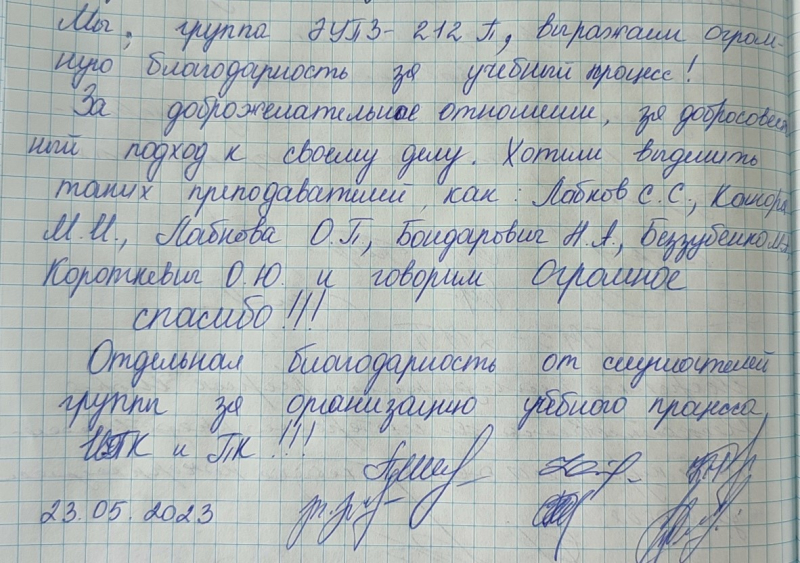 Мы, группа ЭУПЗ-212 П, выражаем огром-
ную благодарность за учебный процесс!
За доброжелательное отношение, за добросовест
ный подход к своему делу. Хотим выделить
таких преподавателей, как: Лобков С.С.,
М.И., Лабкова О.П., Бондарович Н.А., Беззубенко
Короткевич О.Ю. и говорим Огромное
спасибо!!!
Отдельная благодарность от слушателей
группы за организацию учебного процесса,
ИПК и ПК!!!
23.05.2023